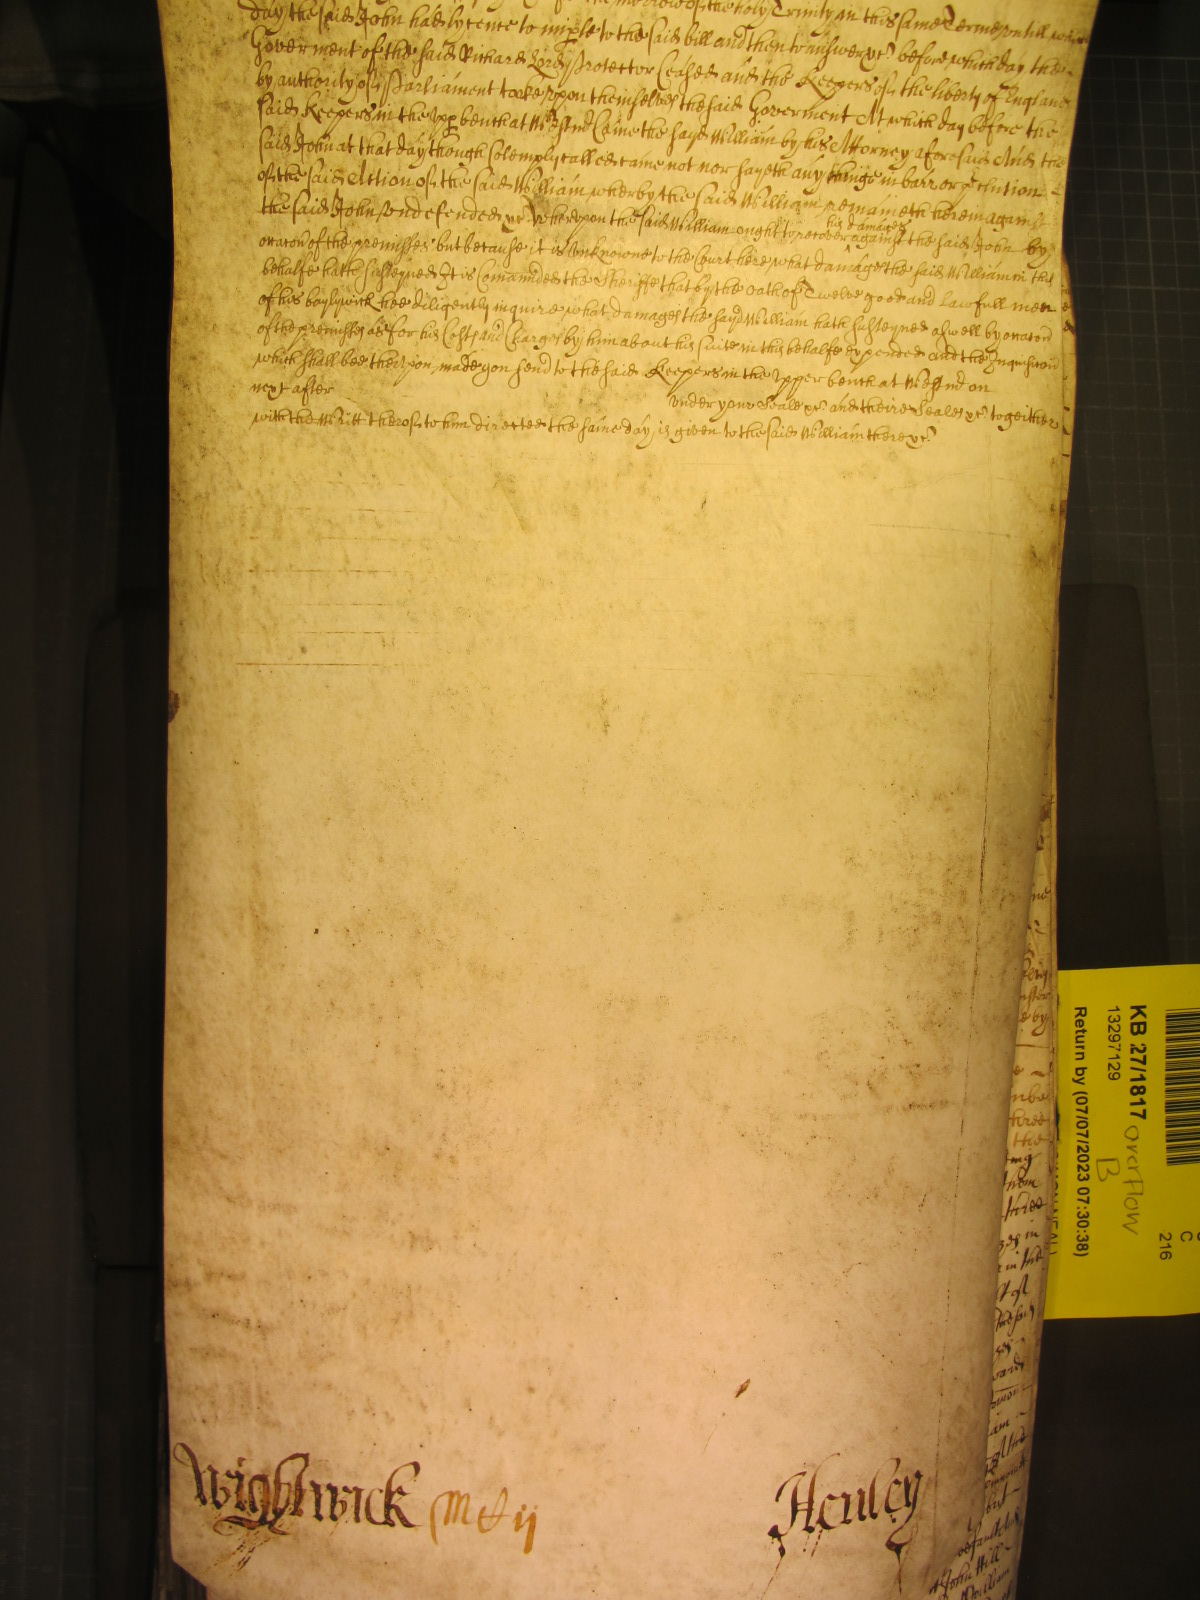 the morrow of the holy Trinity in this same Terme untill which
day the said John had lycence to imple to the said bill and then to answer &c before which day the
Goverment of the said Richard Lord Protector Ceased and the Keepers of the liberty of England
by authority of Parliament tooke uppon themselves the said Goverment At which day before the
said Keepers in the upp bench at Westmr Came the sayd William by his Attorney aforesaid And the
said John at that day though solemply called came not nor sayeth any thinge in barr or
of the said Action of the said William wherby the said William remaineth therein against
the said John undefended &c Wherupon the said William ought to recover against the said John by
his damages
occacon of the premisses but because it is unknowne to the Court here what damages the said William in this
behalfe hath susteyned It is Comannded the Sheriffe that by the oath of Twelve good and lawfull men
of his baylywick hee diligently inquire what damages the sayd William hath susteyned aswell by occacon
of the premisses as for his Costs and Charges by him about his suite in this behalfe expended and the Inquisicon
which shall bee therupon made you send to the said Keepers in the upper bench at Westmr on
next after under your Seale &c and theire Seales &c togeither
with the Writt therof to him directed the same day is given to the said William there &c
Wightwick
Md ij
Henley
KB 27/1817 overflow
B
13297129
Return by (07/07/2023 07:30:38)
216
C
John Hill
William